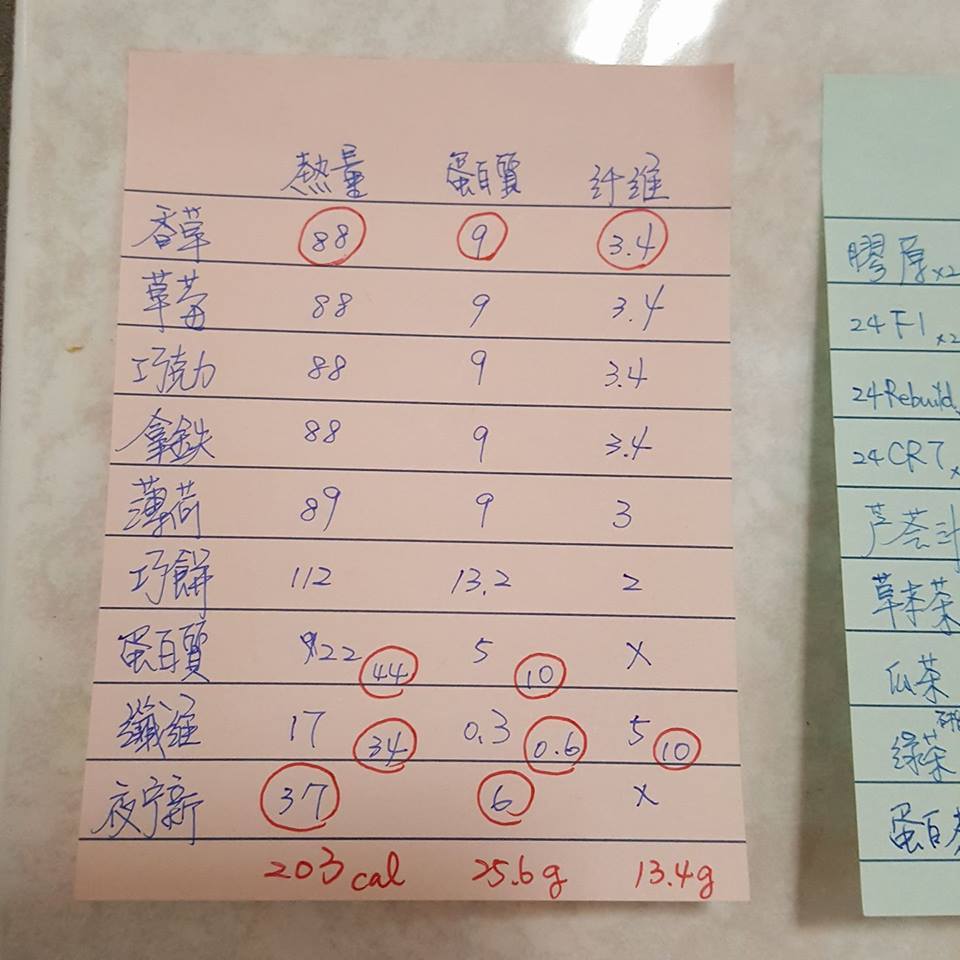 熱量 蛋白質 纤維
香草 88 9 3.4
草莓 88 9 3.4
巧克力 88 9 3.4
拿鉄 88 9 3.4
薄荷 89 9 3
巧餅 112 13.2 2
蛋白質 22 44 5 10 X
纖維 17 34 0.3 0.6 5 10
夜宁新 37 6 X
203 cal 25.6g 13.4g
膠原 x2
24 F1 x2
24 Rebuild
24 CR7 x
芦荟汁
草本茶
瓜茶
绿茶
蛋白